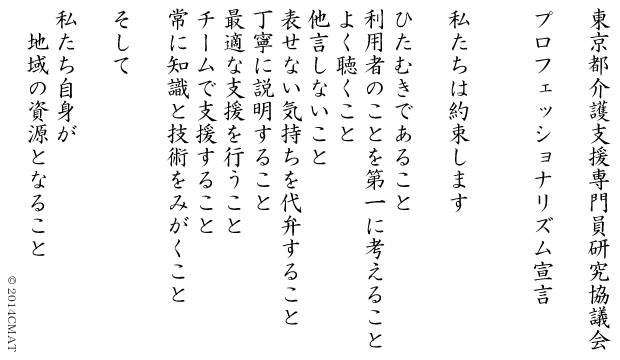 東京都介護支援専門員研究協議会
プロフェッショナリズム宣言
私たちは約束します
ひたむきであること
利用者のことを第一に考えること
よく聴くこと
他言しないこと
表せない気持ちを代弁すること
丁寧に説明すること
最適な支援を行うこと
チームで支援すること
常に知識と技術をみがくこと
そして
私たち自身が
地域の資源となること
© 2014CMAT